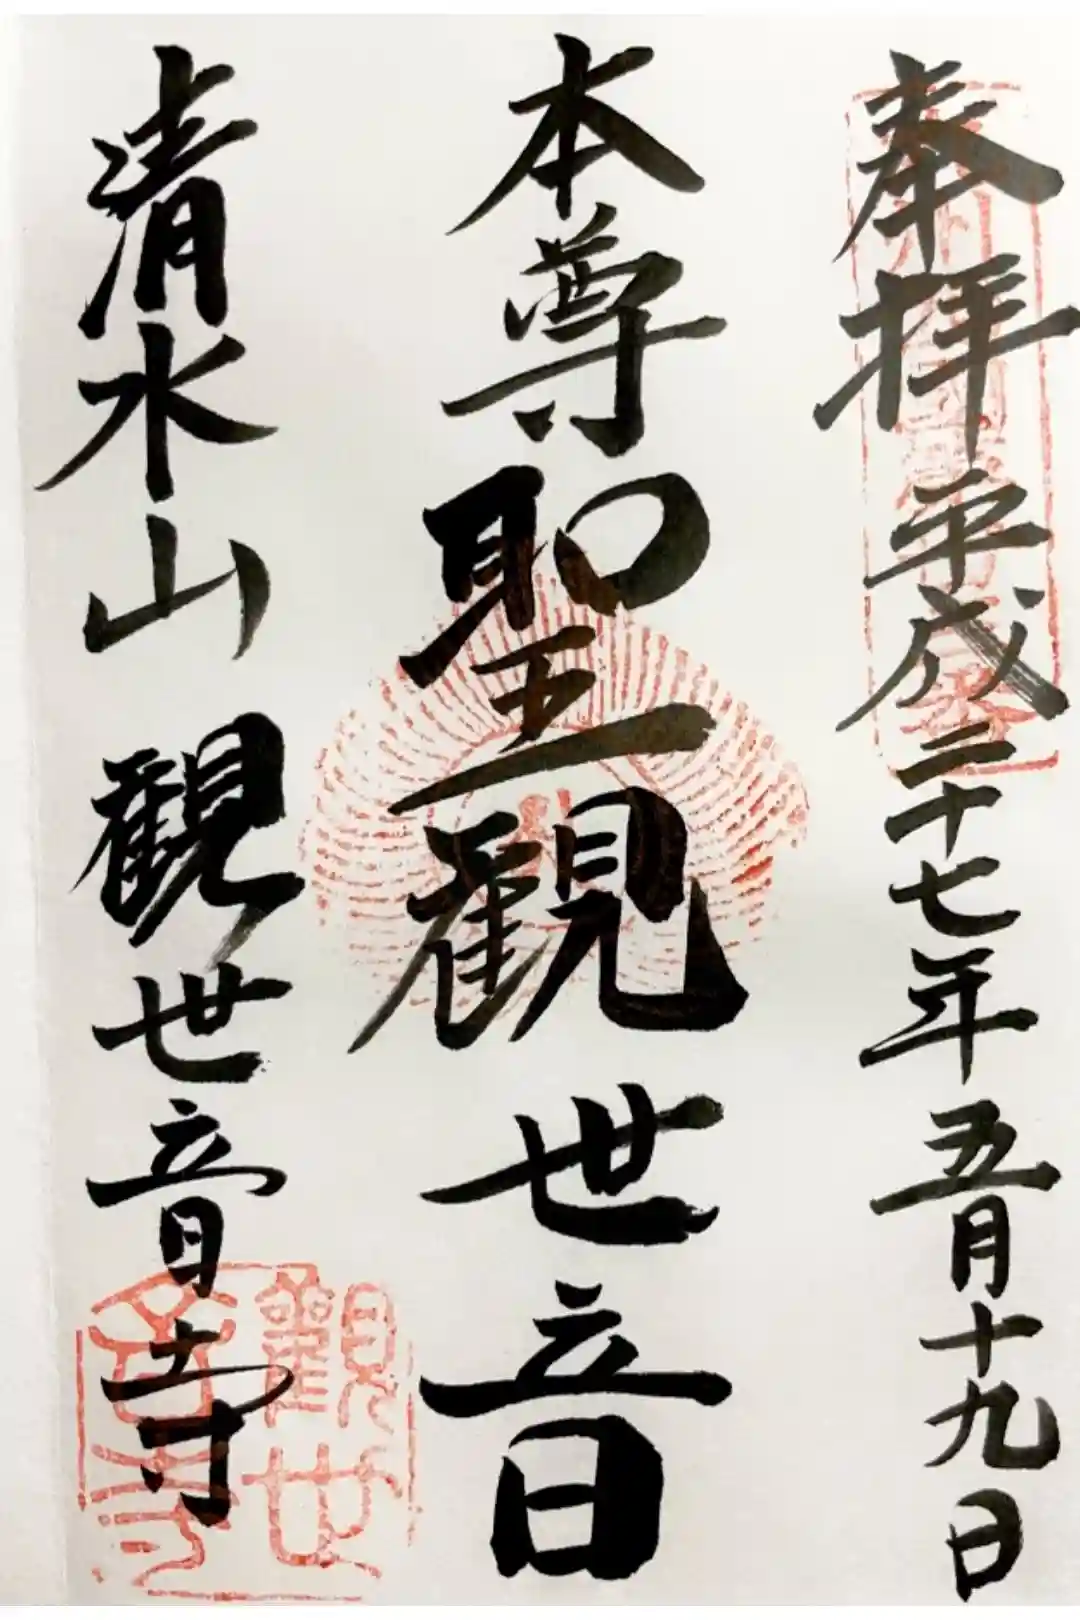 奉拝 平成二十七年五月十九日
本尊聖観世音
清水山観世音寺
觀世
音寺